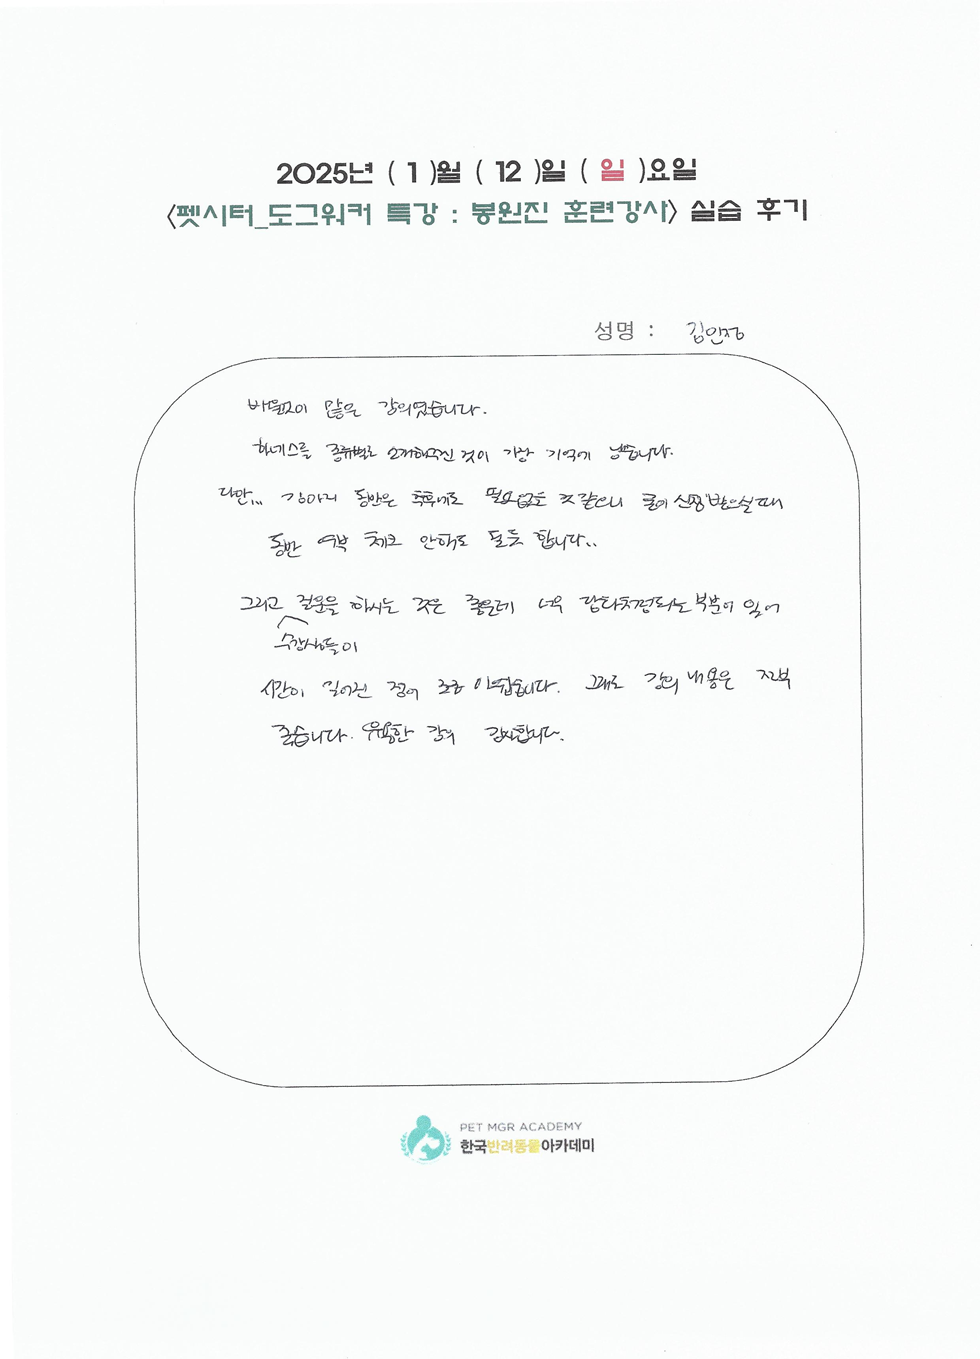 2025년 ( 1 )월 ( 12 )일 ( 일 )요일
<펫시터_도그워커 특강 : 봉원진 훈련강사> 실습 후기
성명 : 김안정
배울것이 많은 강의였습니다.
하네스를 종류별로 소개해주신 것이 가장 기억에 남습니다.
다만... 강아지 동반은 추후에도 필요없을 것 같으니 굳이 신청 받으실 때
동반 여부 체크 안해도 될듯 합니다..
그리고 질문을 하시는 것은 좋은데 너무 잡담처럼되는 부분이 있어
수강생들이
시간이 길어진 점이 조금 아쉽습니다. 그래도 강의 내용은 전부
좋습니다. 유용한 강의 감사합니다.
PET MGR ACADEMY
한국반려동물아카데미